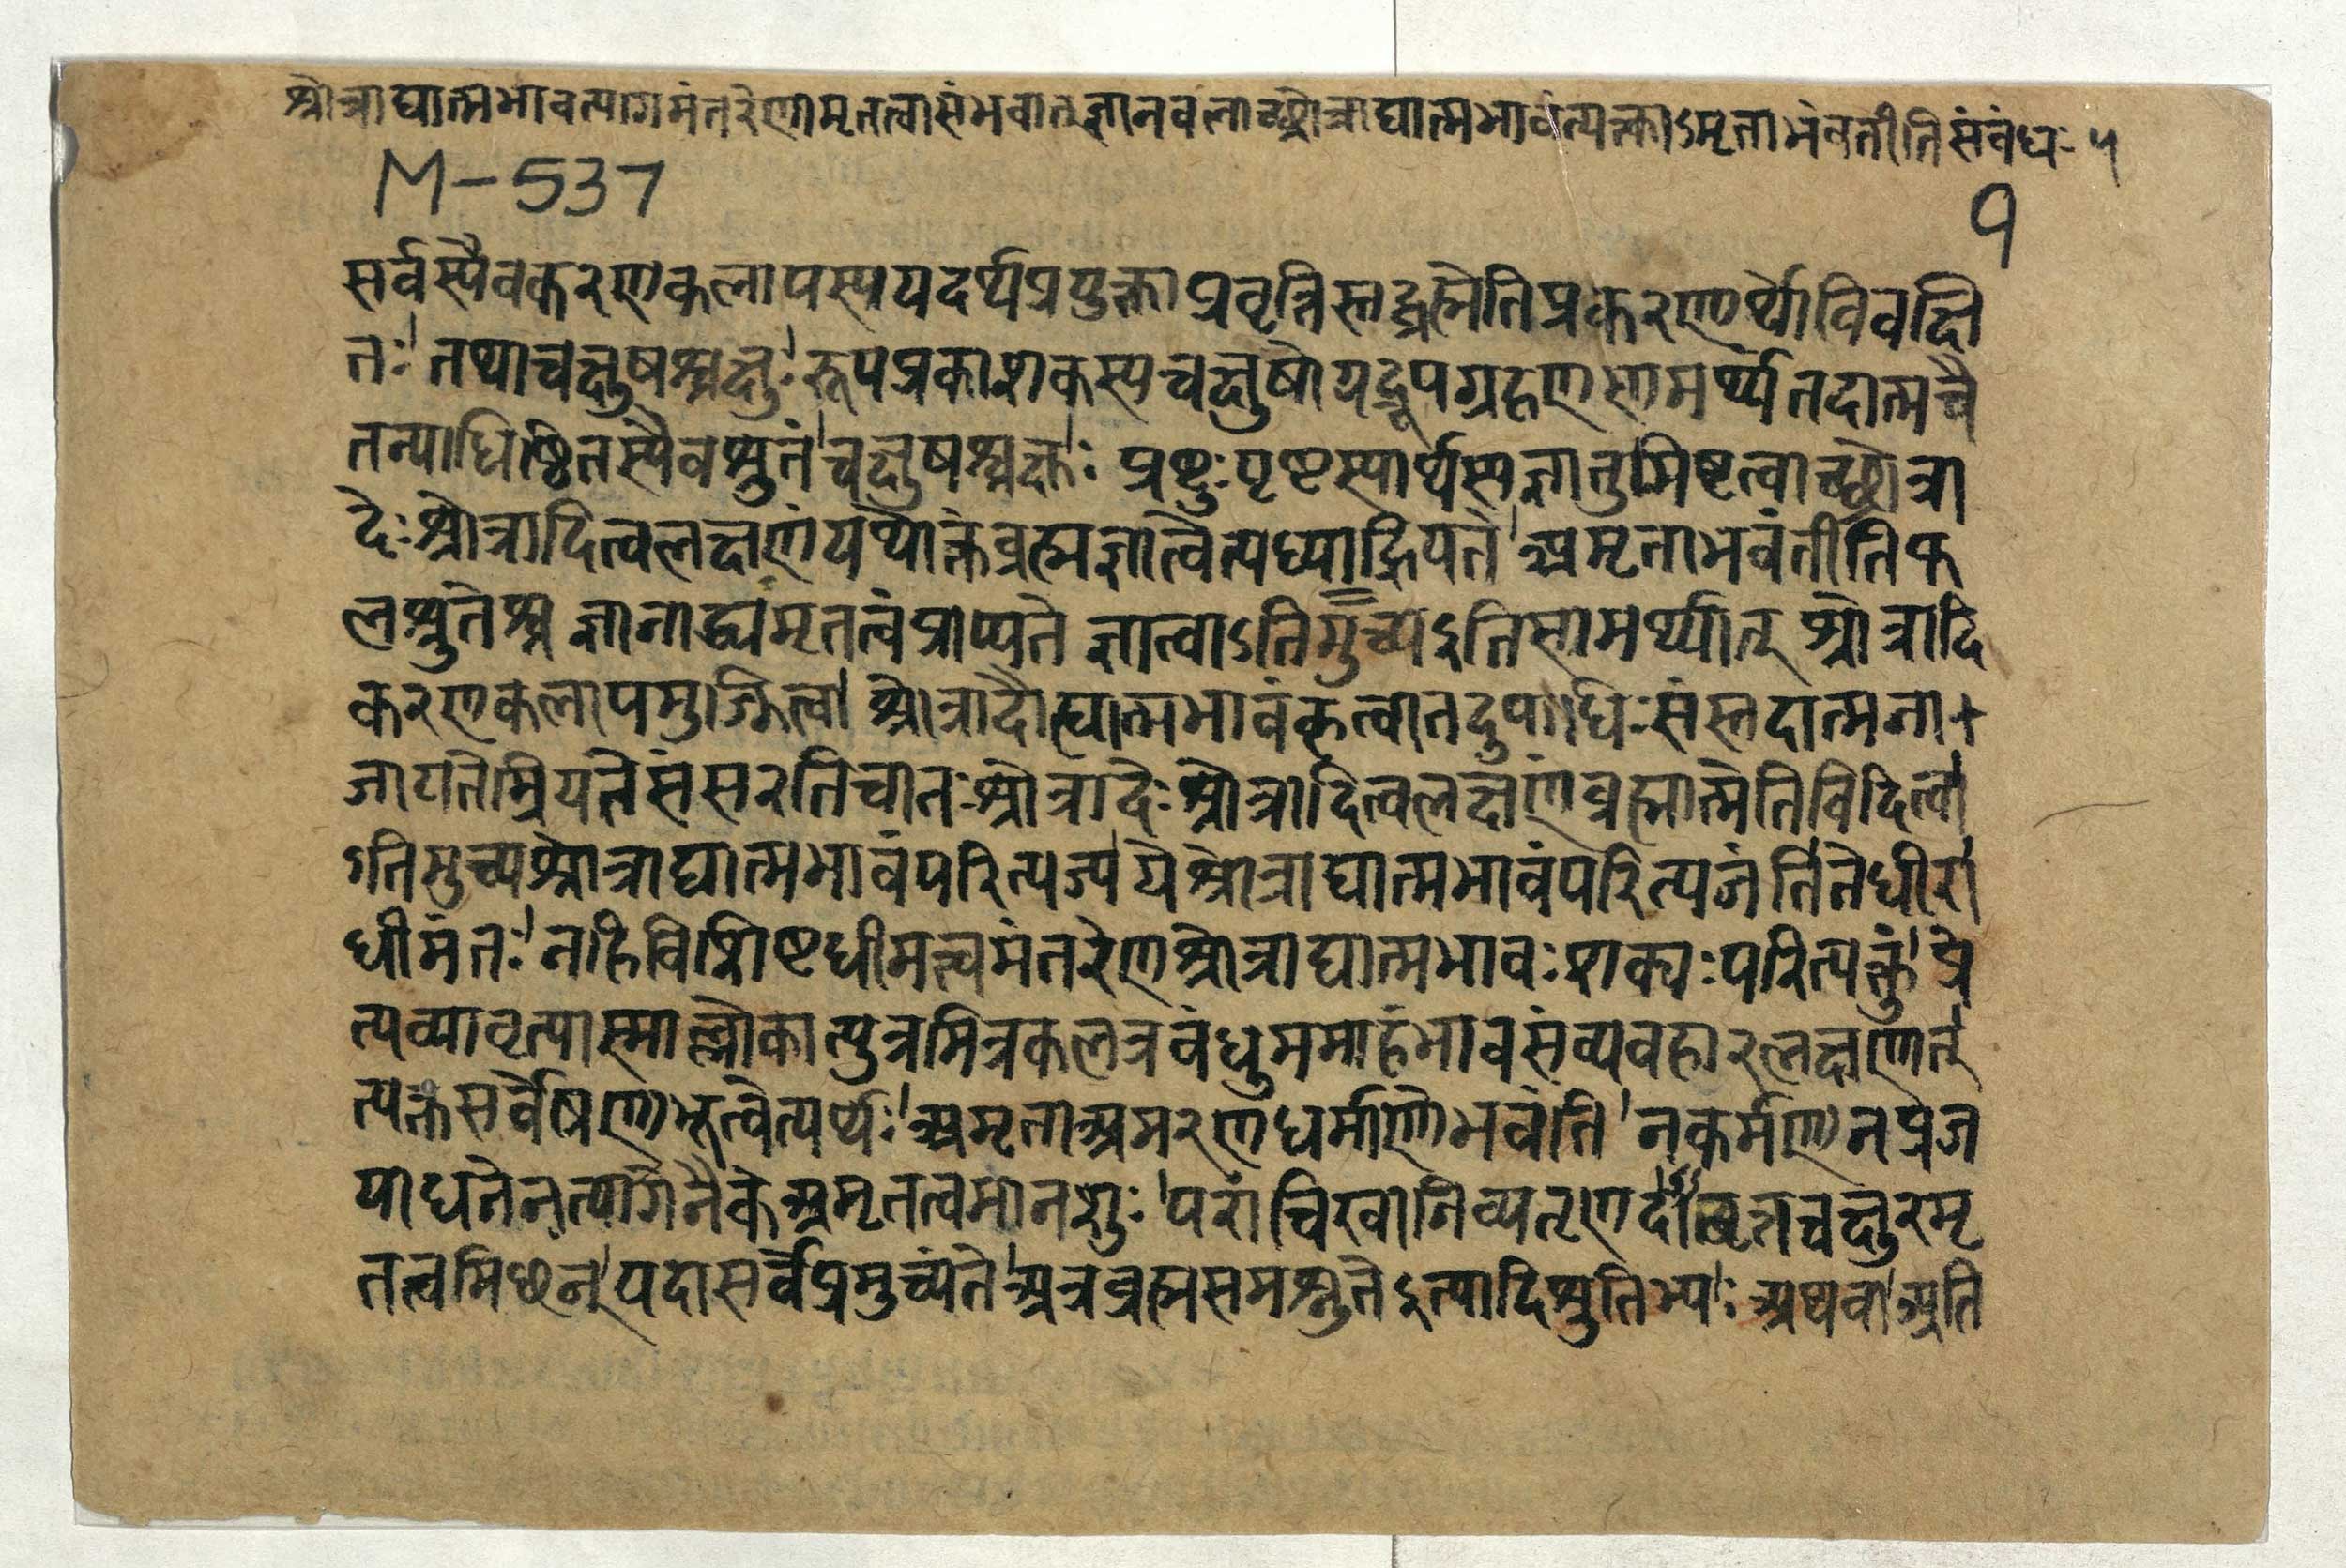 श्रोत्राद्यात्मभावत्यागमंतरेणामृतत्वासंभवात् ज्ञानबलाच्छ्रोत्राद्यात्मभावंत्यक्त्काऽमृताभवंतीतिसंबंधः ५
M-537
९
सर्वस्यैवकरणकलापस्ययदर्थप्रयुक्ताप्रवृत्तिस्तद्ब्रह्मेतिप्रकरणार्थोविवक्षि
तः। तथाचक्षुषश्चक्षुः। रूपप्रकाशकस्यचक्षुषोयद्रूपग्रहणसामर्थ्यंतदात्मचै
तन्याधिष्ठितस्यैवश्रुतं। चक्षुषश्चक्षुः। प्रष्टुःपृष्टस्यार्थस्यज्ञातुमिष्टत्वाच्छ्रोत्रा
देःश्रोत्रादित्वलक्षणंयथोक्तंब्रह्मज्ञात्वेत्यध्याह्रियते। अमृताभवंतीतिफ
लश्रुतेश्च ज्ञानाद्ध्यमृतत्वंप्राप्यते ज्ञात्वाऽतिमुच्यइतिसामर्थ्यात् श्रोत्रादि
करणकलापमुज्झित्वा। श्रोत्रादौह्यात्मभावंकृत्वातदुपाधिःसंस्तदात्मना+
जायतेम्रियतेसंसरतिचातःश्रोत्रादेःश्रोत्रादित्वलक्षणंब्रह्मात्मेतिविदित्वा।
ऽतिमुच्यश्रोत्राद्यात्मभावंपरित्यज्य। येश्रोत्राद्यात्मभावंपरित्यजंति। तेधीरा।
धीमंतः। नहिविशिष्टधीमत्त्वमंतरेणश्रोत्राद्यात्मभावःशक्यःपरित्यक्तुं। प्रे
त्यव्यावृत्यास्माल्लोकात्पुत्रमित्रकलत्रबंधुममाहंभावसंव्यवहारलक्षणात्।
त्यक्तसर्वेषणाभूत्वेत्यर्थः। अमृताअमरणधर्माणोभवंति। नकर्मणानप्रज
याधनेनत्यागेनैकेअमृतत्वमानशुः। परांचिखानिव्यतृणदा॰वृत्तचक्षुरमृ
तत्वमिछन्। यदासर्वेप्रमुच्यंते। अत्रब्रह्मसमश्नुतेइत्यादिश्रुतिभ्यः। अथवा। अति